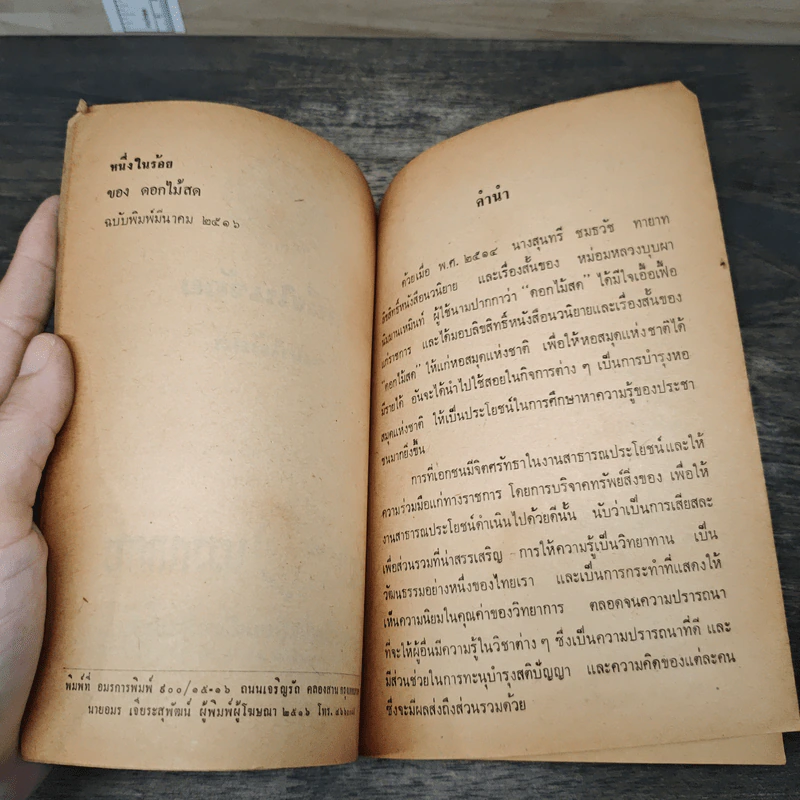 หนึ่งในร้อย
ของ ดอกไม้สด
ฉบับพิมพ์มีนาคม ๒๕๑๖
พิมพ์ที่ อมรการพิมพ์ ๙๐๐/๑๕-๑๖ ถนนเจริญรัถ คลองสาน
นายอมร เจียระสุพัฒน์ ผู้พิมพ์ผู้โฆษณา ๒๕๑๖ โทร.
คำนำ
ด้วยเมื่อ พ.ศ. ๒๕๑๔ นางสุนทรี ชมธวัช ทายาท
ลิขสิทธิ์หนังสือนวนิยาย และเรื่องสั้นของ หม่อมหลวงบุบผา
นิมมานเหมินท์ ผู้ใช้นามปากกาว่า "ดอกไม้สด" ได้มีใจเอื้อเฟื้อ
แก่ราชการ และได้มอบลิขสิทธิ์หนังสือนวนิยายและเรื่องสั้นของ
"ดอกไม้สด" ให้แก่หอสมุดแห่งชาติ เพื่อให้หอสมุดแห่งชาติได้
มีรายได้ อันจะได้นำไปใช้สอยในกิจการต่าง ๆ เป็นการบำรุงหอ
สมุดแห่งชาติ ให้เป็นประโยชน์ในการศึกษาหาความรู้ของประชา
ชนมากยิ่งขึ้น
การที่เอกชนมีจิตศรัทธาในงานสาธารณประโยชน์และให้
ความร่วมมือแก่ทางราชการ โดยการบริจาคทรัพย์สิ่งของ เพื่อให้
งานสาธารณประโยชน์ดำเนินไปด้วยดีนั้น นับว่าเป็นการเสียสละ
เพื่อส่วนรวมที่น่าสรรเสริญ การให้ความรู้เป็นวิทยาทาน เป็น
วัฒนธรรมอย่างหนึ่งของไทยเรา และเป็นการกระทำที่แสดงให้
เห็นความนิยมในคุณค่าของวิทยาการ ตลอดจนความปรารถนา
ที่จะให้ผู้อื่นมีความรู้ในวิชาต่าง ๆ ซึ่งเป็นความปรารถนาที่ดี และ
มีส่วนช่วยในการทะนุบำรุงสติปัญญา และความคิดของแต่ละคน
ซึ่งจะมีผลส่งถึงส่วนรวมด้วย